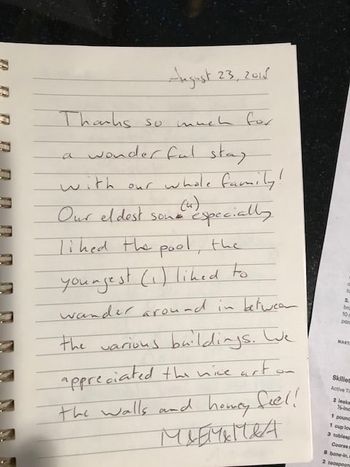 August 23, 2018
Thanks so much for
a wonderful stay
with our whole family!
Our eldest son (4) especially
liked the pool, the
youngest (1) liked to
wander around in between
the various buildings. We
appreciated the nice art on
the walls and homey feel!
Skillet
Active Ti
2 leeks
1 pound
1 cup lo
3 tables
Coarse
8 bone-in
2 teaspoo